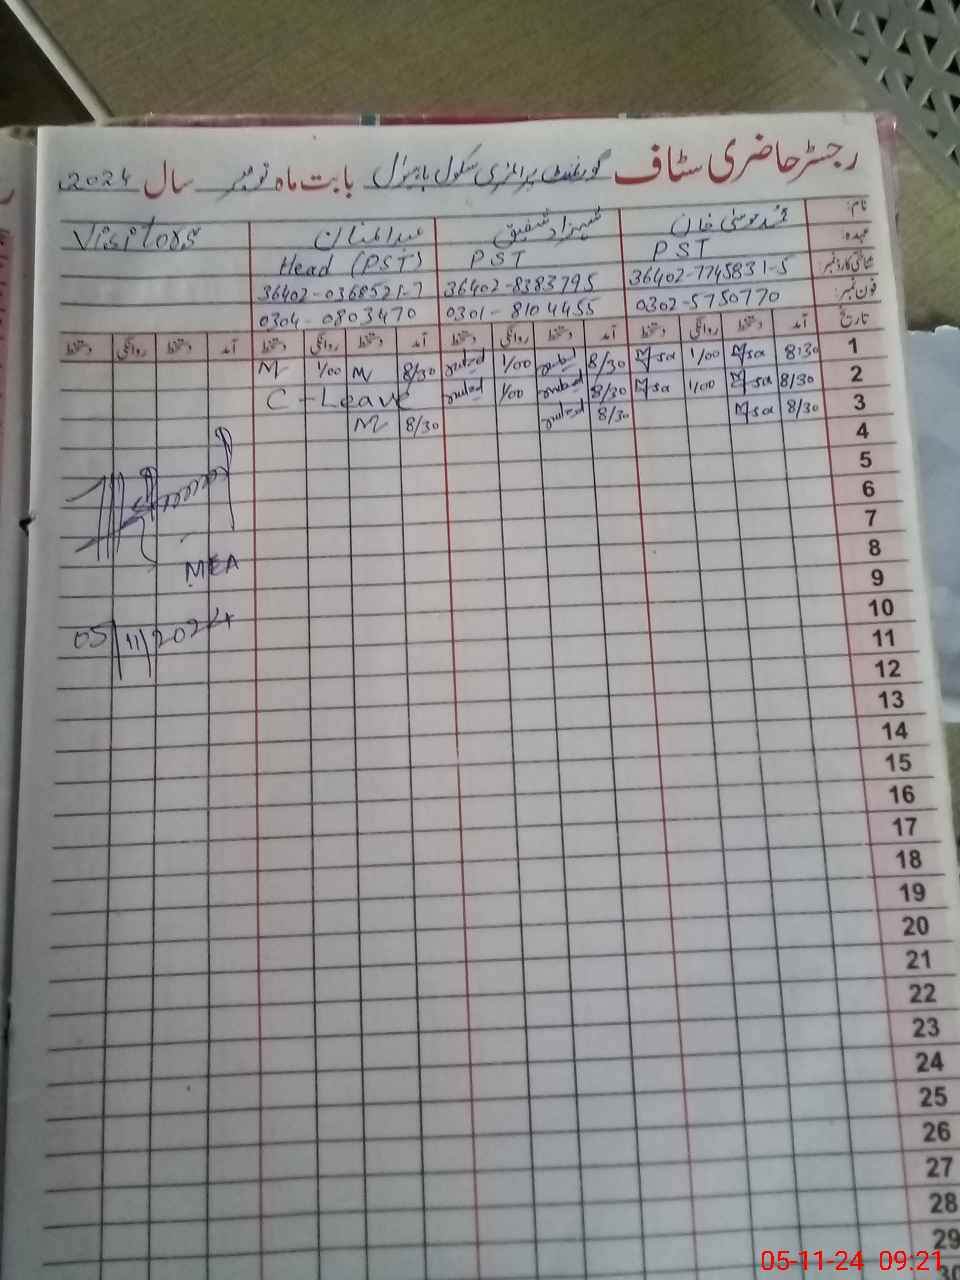 رجسٹر حاضری سٹاف گورنمنٹ پرائمری سکول بابت ماہ نومبر سال 2024
نام:
محمد موسیٰ خان
شہزاد شفیق
عبدالمنان
Visitors
عہدہ:
PST
PST
Head (PST)
شناختی کارڈ نمبر:
36402-7745831-5
36402-8383795
36402-0368521-7
فون نمبر:
0302-5750770
0301-8104455
0304-0803470
تاریخ آمد دستخط روانگی دستخط آمد دستخط روانگی دستخط آمد دستخط روانگی دستخط آمد دستخط روانگی دستخط
1 8:30 Msa 1/00 Msa 8/30 1/00 8/30 M 1/00 M
2 8/30 Msa 1/00 Msa 8/30 1/00 C-Leave
3 8/30 Msa 8/30 8/30 M
4
5
6
7
8
MEA
9
10
05/11/2024
11
12
13
14
15
16
17
18
19
20
21
22
23
24
25
26
27
28
29
30
05-11-24 09:21